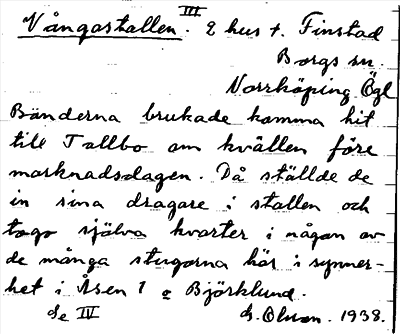 III
Vångastallen. 2 hus t. Finstad
Borgs sn.
Norrköping Ögl
Bönderna brukade komma hit
till Tallbo om kvällen före
marknadsdagen. Då ställde de
in sina dragare i stallen och
togo själva kvarter i någon av
de många stugorna här i synner-
het i Åsen 1 o Björklund.
Se IV G. Olsson. 1938.